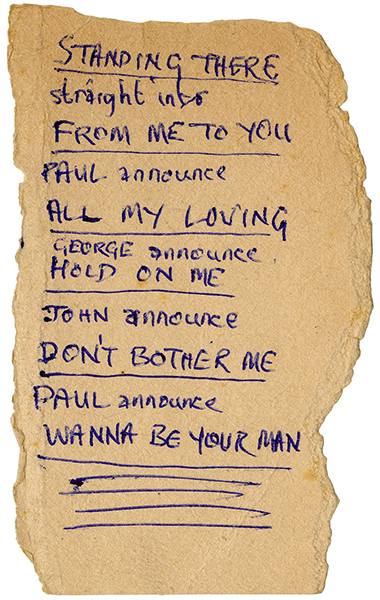 STANDING THERE
straight into
FROM ME TO YOU
PAUL announce
ALL MY LOVING
GEORGE announce
HOLD ON ME
JOHN announce
DON'T BOTHER ME
PAUL announce
WANNA BE YOUR MAN